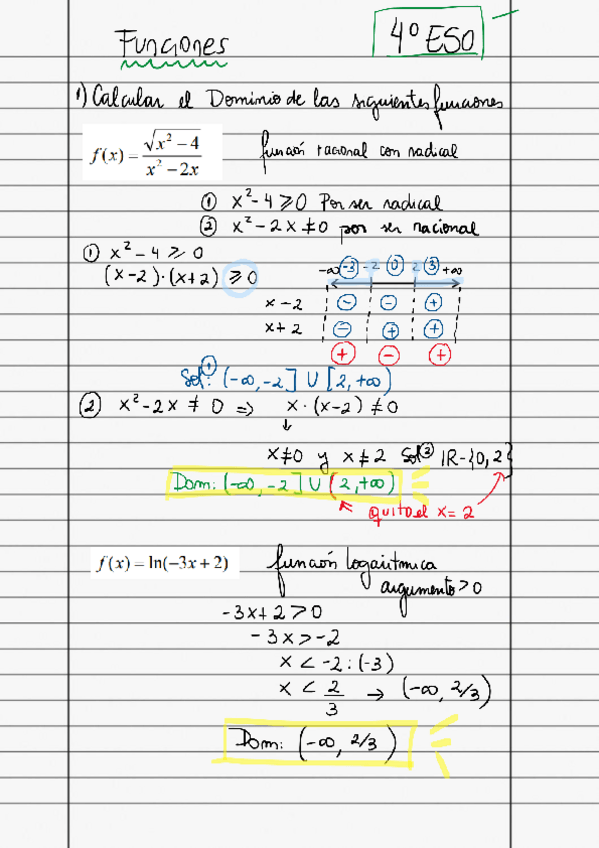 Funciones
4º ESO
1) Calcular el Dominio de las siguientes funciones
f(x) = √(x² − 4) / (x² − 2x)
función racional con radical
① x² - 4 ⩾ 0 Por ser radical
② x² - 2x ≠ 0 por ser racional
① x² - 4 ⩾ 0
(x-2)·(x+2) ⩾ 0
-∞ (-3) -2 (0) 2 (3) +∞
x - 2 - - +
x + 2 - + +
+ - +
Sol①: (-∞, -2] ∪ [2, +∞)
② x² - 2x ≠ 0 => x · (x-2) ≠ 0
↓
x≠0 y x≠2 Sol② ℝ-{0,2}
Dom: (-∞, -2] ∪ (2, +∞)
quito el x = 2
f(x) = ln(−3x + 2)
función logarítmica
argumento > 0
-3x + 2 > 0
- 3x > -2
x < -2 : (-3)
x < 2/3 → (-∞, 2/3)
Dom: (-∞, 2/3)